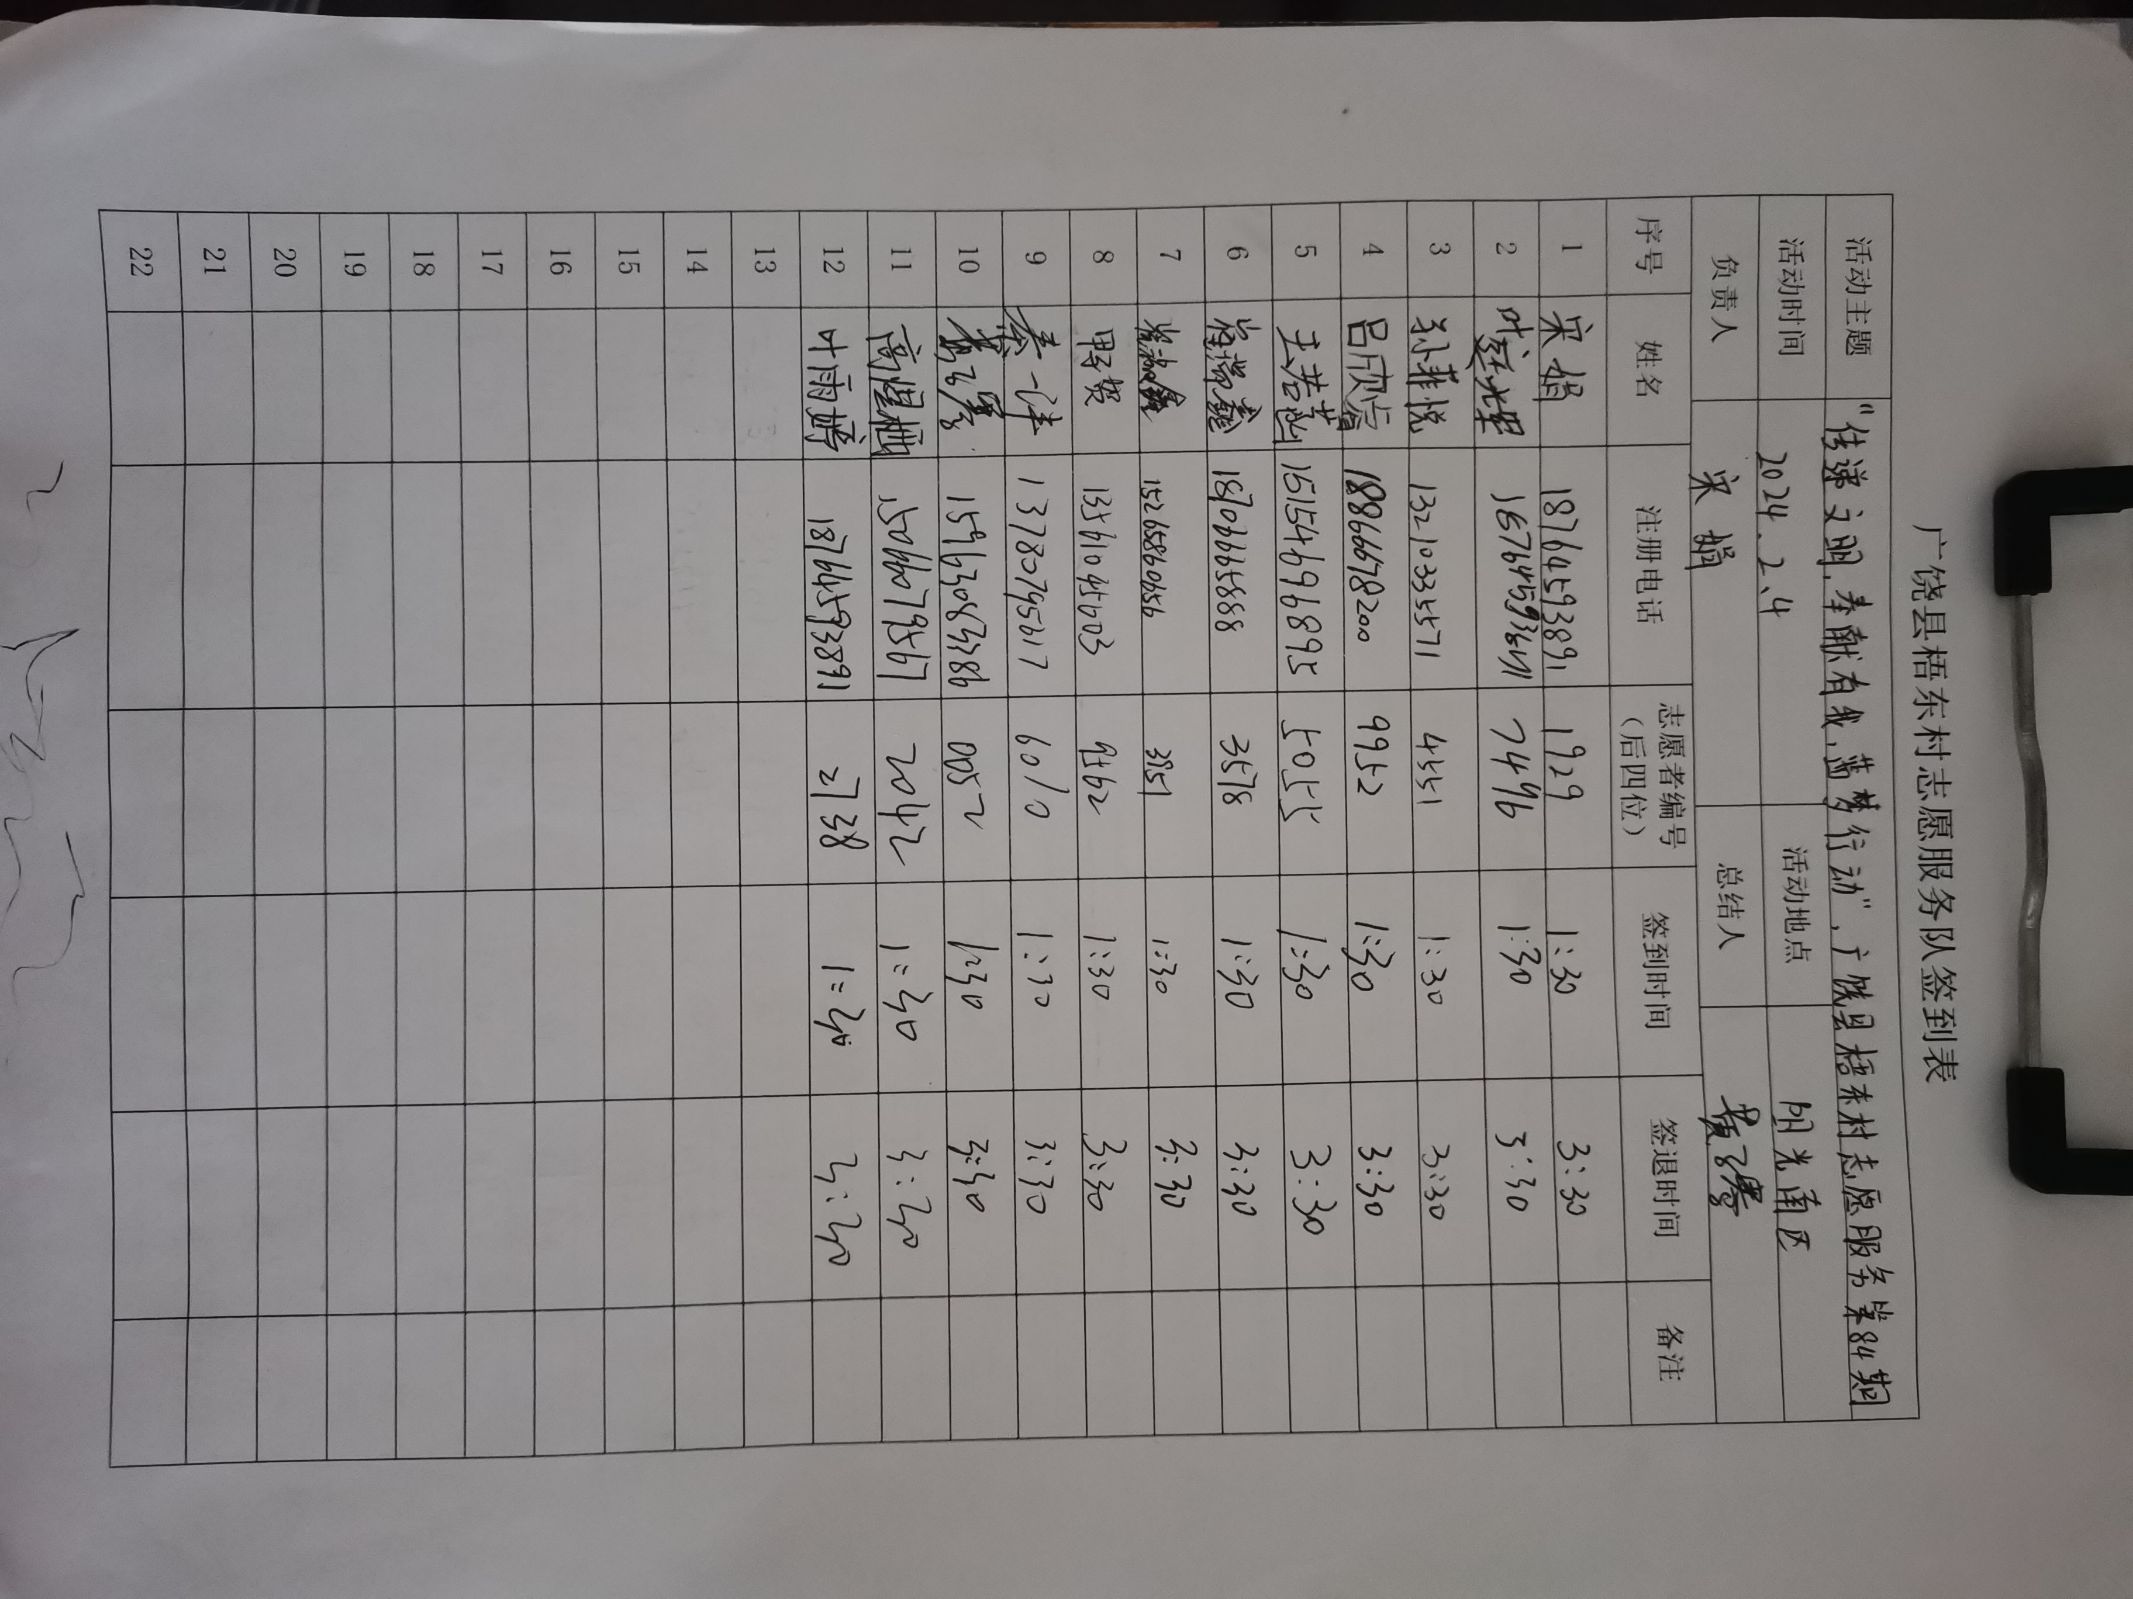 广饶县梧东村志愿服务队签到表
活动主题 "传递文明,奉献有我,蓝梦行动",广饶县梧东村志愿服务第84期
活动时间 2024.2.4 活动地点 阳光莆区
负责人 宋娟 总结人
序号 姓名 注册电话 志愿者编号(后四位) 签到时间 签退时间 备注
1 宋娟 18764593891 1929 1:30 3:30
2 7496 1:30 3:30
3 孙菲悦 13210335571 4551 1:30 3:30
4 吕欣 18866678200 9952 1:30 3:30
5 王若菡 15154696895 5055 1:30 3:30
6 18706665888 3578 1:30 3:30
7 15265860656 3151 1:30 3:30
8 13561045603 9562 1:30 3:30
9 13780795617 6010 1:30 3:30
10 15963083386 0952 1:30 3:30
11 15066079567 2042 1:30 3:30
12 叶雨 18764593891 2138 1:30 3:30
13
14
15
16
17
18
19
20
21
22